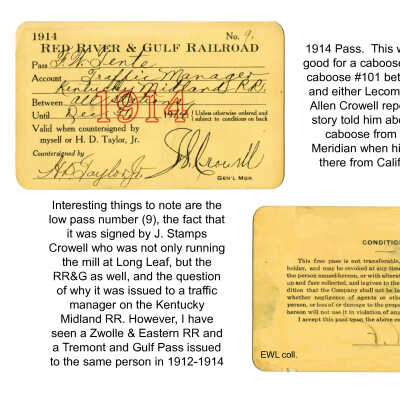 1914 No. 9.
RED RIVER & GULF RAILROAD
Pass F. W. Tente
Account Traffic Manager
Kentucky Midland R.R.
Between all stations
Until Dec 31 1914 Unless otherwise ordered and
subject to conditions on back
1914
Valid when countersigned by
myself or H. D. Taylor, Jr.
Countersigned by
H D Taylor Jr.
J S Crowell
GEN'L MGR.
1914 Pass. This w
good for a caboose
caboose #101 bet
and either Lecom
Allen Crowell repo
story told him abo
caboose from
Meridian when hi
there from Calif
Interesting things to note are the
low pass number (9), the fact that
it was signed by J. Stamps
Crowell who was not only running
the mill at Long Leaf, but the
RR&G as well, and the question
of why it was issued to a traffic
manager on the Kentucky
Midland RR. However, I have
seen a Zwolle & Eastern RR and
a Tremont and Gulf Pass issued
to the same person in 1912-1914
CONDITIO
This free pass is not transferable,
holder, and may be revoked at any time
the person named hereon, or with alterat
up and fare collected, and is given to the
dition that the Company shall not be lia
whether negligence of agents or othe
person, or for loss of or damage to the prope
hereon will not use it in violation of any
I accept this pass upon the above co
EWL coll.